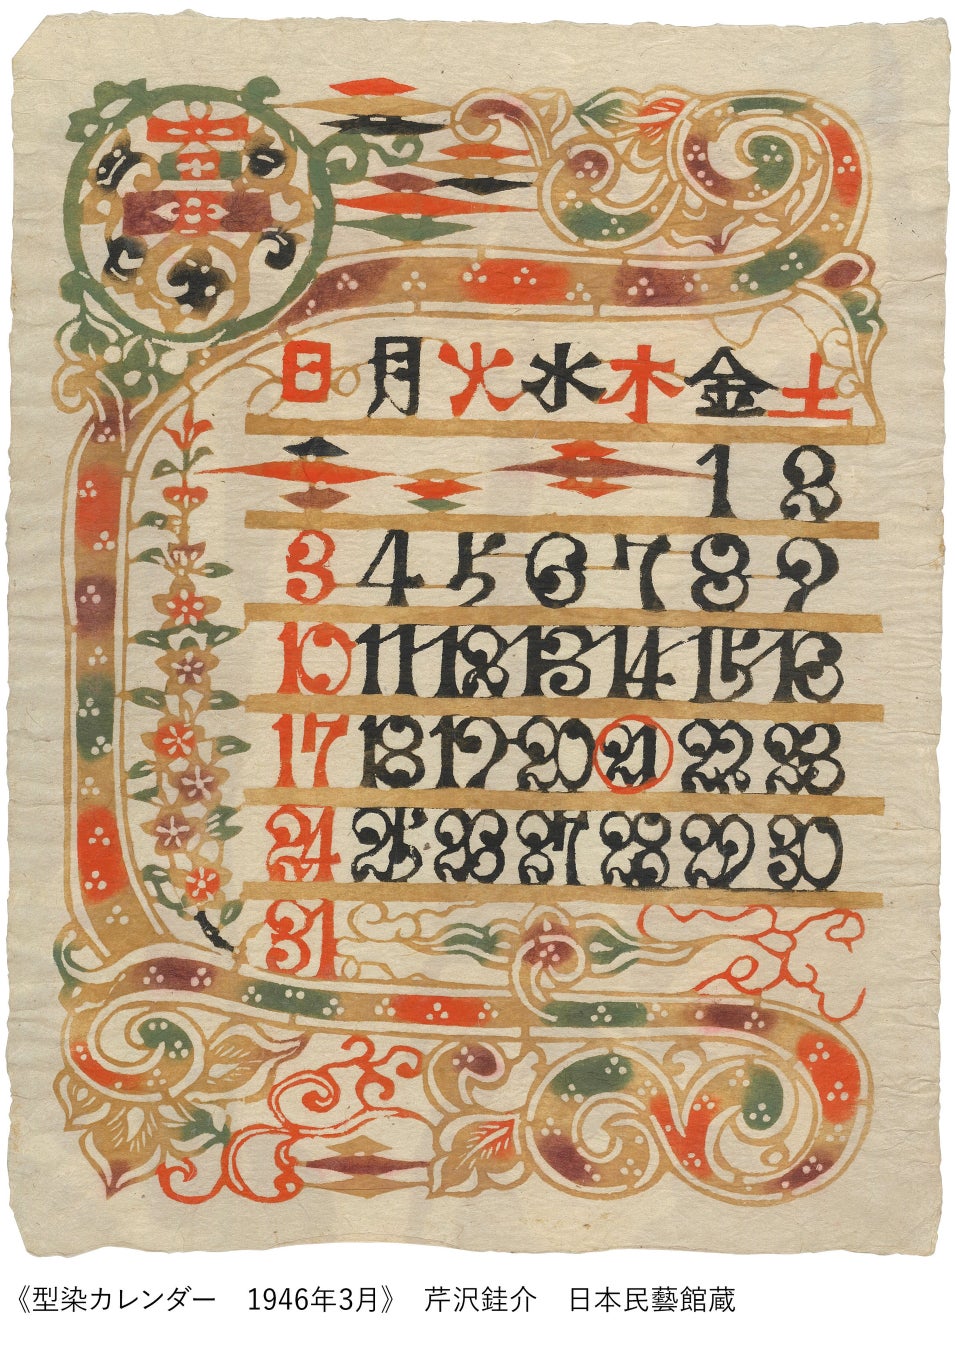 日 月 火 水 木 金 土
1 2
3 4 5 6 7 8 9
10 11 12 13 14 15 16
17 18 19 20 21 22 23
24 25 26 27 28 29 30
31
《型染カレンダー　1946年3月》　芹沢銈介　日本民藝館蔵